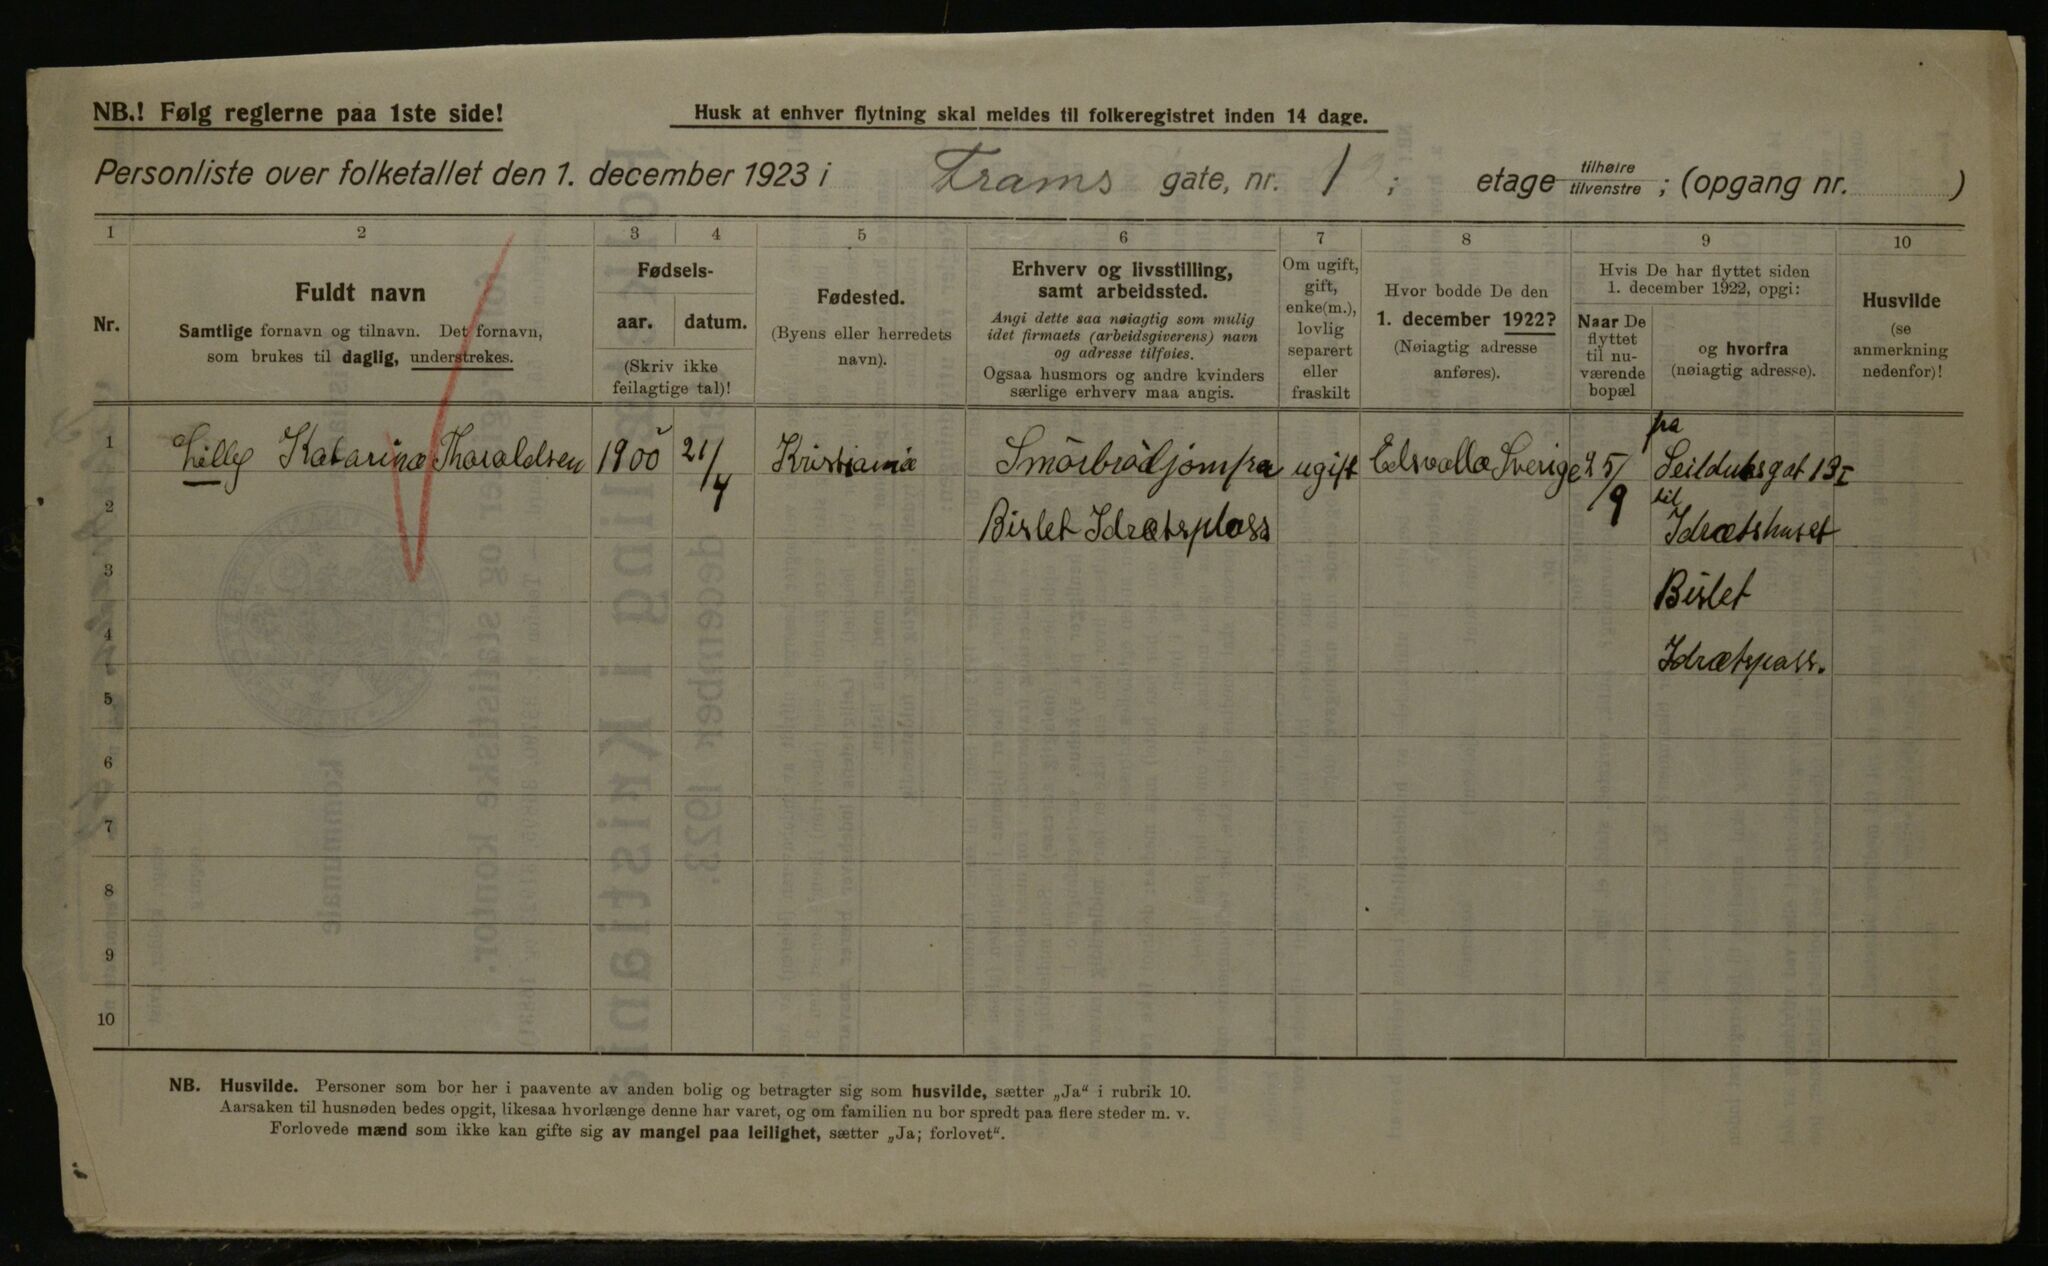 NB.! Følg reglerne paa 1ste side!
Husk at enhver flytning skal meldes til folkeregistret inden 14 dage.
Personliste over folketallet den 1. december 1923 i Frams gate, nr. 1 ; etage tilhøire tilvenstre ; (opgang nr. )
1 2 3 4 5 6 7 8 9 10
Nr.
Fuldt navn
Samtlige fornavn og tilnavn. Det fornavn,
som brukes til daglig, understrekes.
Fødsels-
aar. datum.
(Skriv ikke
feilagtige tal)!
Fødested.
(Byens eller herredets
navn).
Erhverv og livsstilling,
samt arbeidssted.
Angi dette saa nøiagtig som mulig
idet firmaets (arbeidsgiverens) navn
og adresse tilføies.
Ogsaa husmors og andre kvinders
særlige erhverv maa angis.
Om ugift,
gift,
enke(m.),
lovlig
separert
eller
fraskilt
Hvor bodde De den
1. december 1922?
(Nøiagtig adresse
anføres).
Hvis De har flyttet siden
1. december 1922, opgi:
Naar De
flyttet
til nu-
værende
bopæl
og hvorfra
(nøiagtig adresse).
Husvilde
(se
anmerkning
nedenfor)!
1 Lilly Katarina Tharaldsen 1900 21/4 Kristiania Smörbrödjomfru ugift Edsvalla Sverige 25/9 fra Seildugsgat 13 I
2 Bislet Idrætsplass til Idrætshuset
3 Bislet
4 Idrætspass.
5
6
7
8
9
10
NB. Husvilde. Personer som bor her i paavente av anden bolig og betragter sig som husvilde, sætter „Ja“ i rubrik 10.
Aarsaken til husnøden bedes opgit, likesaa hvorlænge denne har varet, og om familien nu bor spredt paa flere steder m. v.
Forlovede mænd som ikke kan gifte sig av mangel paa leilighet, sætter „Ja; forlovet“.